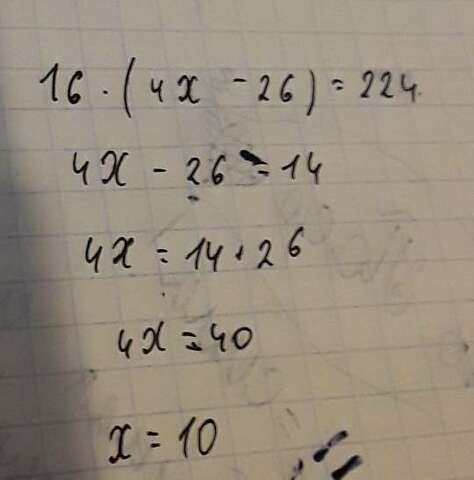 16 · (4x - 26) = 224
4x - 26 = 14
4x = 14 + 26
4x = 40
x = 10